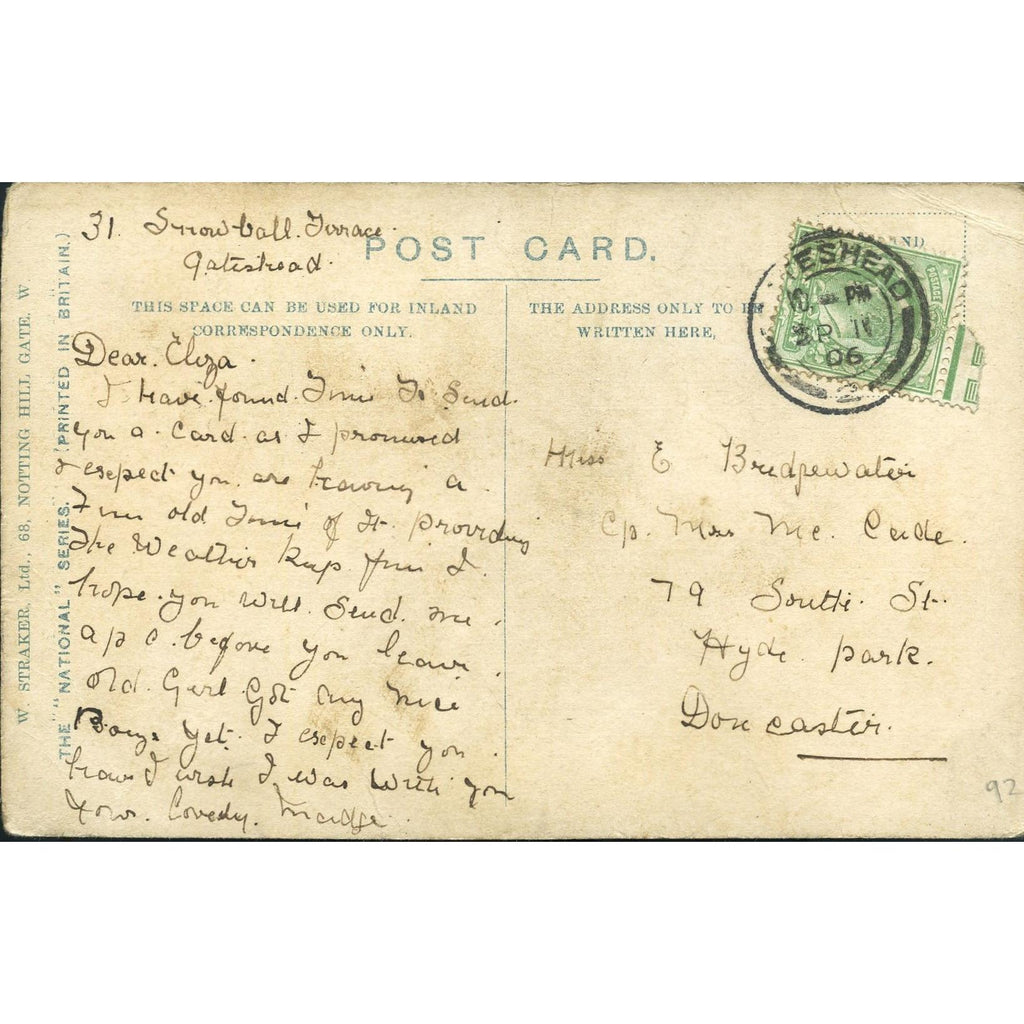 31. Snowball. Terrace.
Gateshead.
POST CARD.
THIS SPACE CAN BE USED FOR INLAND
CORRESPONDENCE ONLY.
Dear. Eliza.
I have found Time To Send.
you a Card as I promised
I exspect you are having a
Fine old Time of It providing
The Weather keep fine I
hope you will Send me.
a p c. before you leave
old Girl Got any nice
Boys yet. I exspect you
have I wish I was with you
yours. Madge.
THE ADDRESS ONLY TO BE
WRITTEN HERE,
Miss E Bridgewater
Mrs Mc.
79 South St.
Hyde park.
Doncaster.
TESHEAD
PM
06
92
W. STRAKER, Ltd., 68, NOTTING HILL GATE, W
THE "NATIONAL" SERIES. (PRINTED IN BRITAIN.)